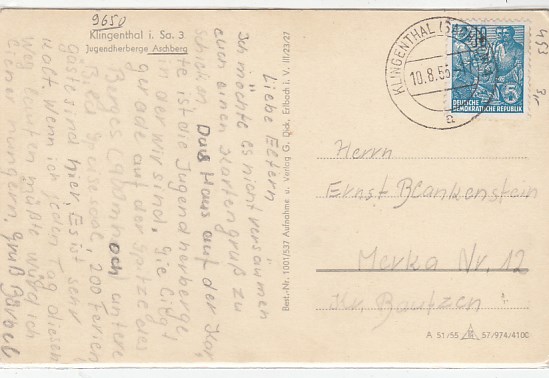 9650
Klingenthal i. Sa. 3
Jugendherberge Aschberg
Liebe Eltern
Ich möchte es nicht versäumen
euch einen Kartengruß zu
schicken. Das Haus auf der Kar
te ist die Jugendherberge
in der wir sind. Sie liegt
gerade auf der Spitze des
Berges. noch andere
200 Ferien
gäste sind hier. Es ist sehr
kalt wenn ich jeden Tag diesen
Weg müßte würde ich
verhungern. Gruß Bärbel
Best.-Nr. 1001/537 Aufnahme u. Verlag G. Dick, Erlbach i. V. III/23/27
KLINGENTHAL (SACHS)
10.8.55
a
DEUTSCHE
DEMOKRATISCHE REPUBLIK
5
Herrn
Ernst Blankenstein
Merka Nr. 12
Kr. Bautzen
A 51/55 57/974/4100